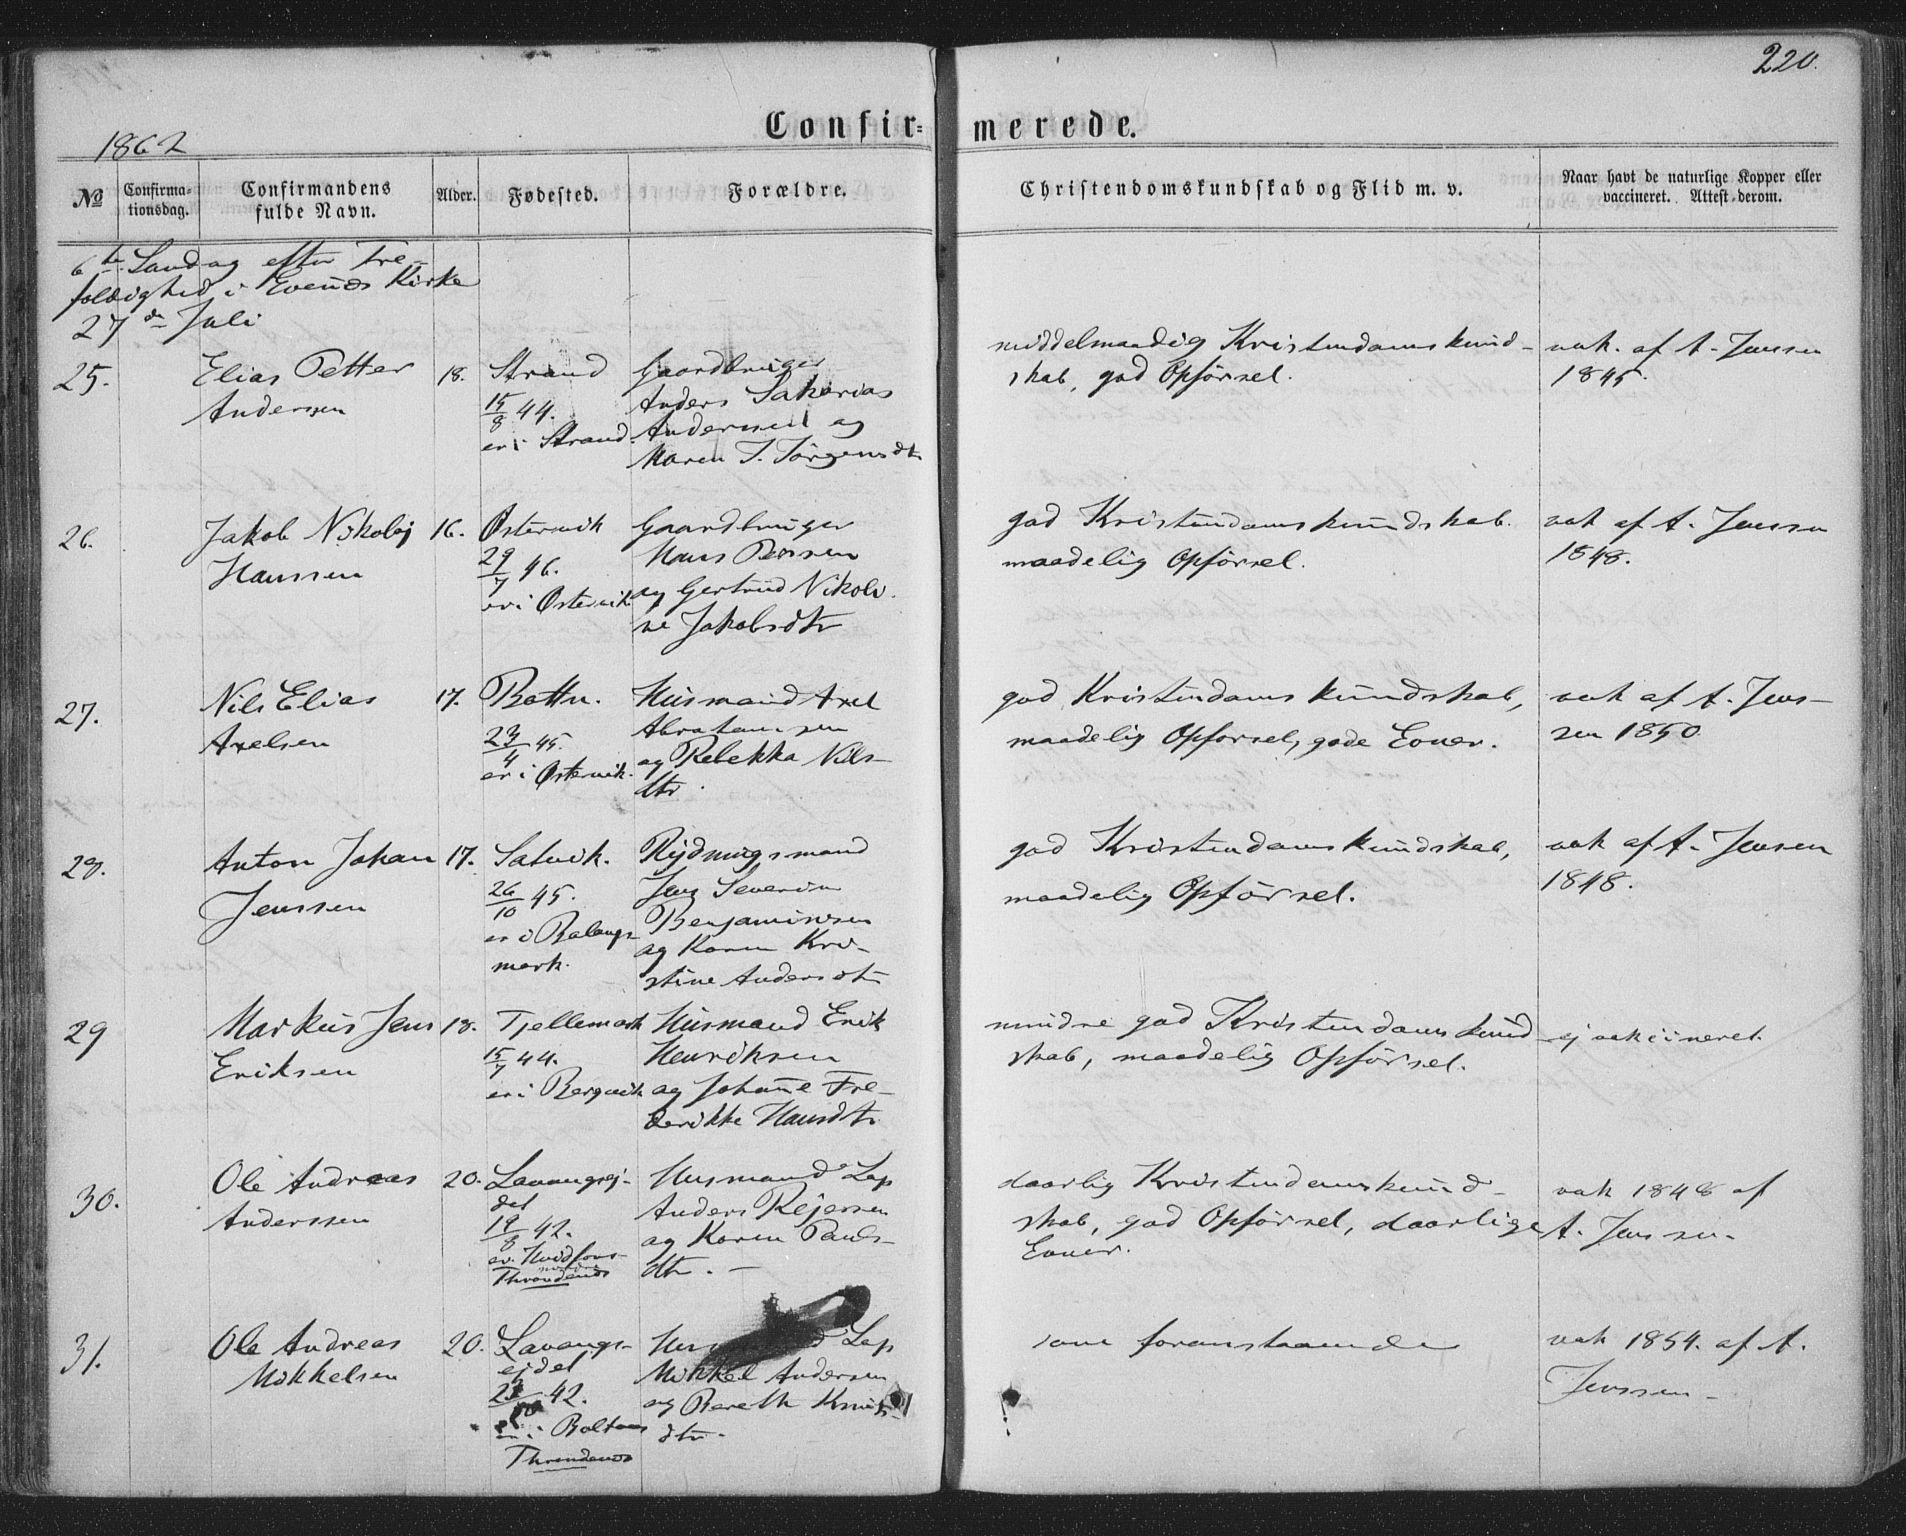 220.
Confir=merede.
1862
No
Confirma-tionsdag.
Confirmandens fulde Navn.
Alder.
Fødested.
Forældre.
Christendomskundskab og Flid m. v.
Naar havt de naturlige Kopper eller vaccineret. Attest derom.
6te Søndag efter Tre-
foldighed i Evenæs Kirke
27de Juli
25.
Elias Petter
Anderssen
18.
Strand
15/8 44.
er i Strand.
Gaardbruger
Anders Sakarias
Anderssen og
Maren J. Jørgensdtr
middelmaadig Kristendomskund-
skab, god Opførsel.
vak. af A. Jenssen
1845.
26.
Jakob Nikolaj
Hanssen
16.
Østervik
29/7 46.
er i Østervik
Gaardbruger
Hans Persen
og Gertrud Nikoli-
ne Jakobsdtr
god Kristendomskundskab.
maadelig Opførsel.
vak af A. Jenssen
1848.
27.
Nils Elias
Axelsen
17.
Botten.
/4 45.
er i Østervik.
Husmand Axel
Abrahamsen
og Rebekka Nils-
dtr.
god Kristendomskundskab,
maadelig Opførsel, gode Evner.
vak af A. Jens-
sen 1850.
28.
Anton Johan
Jenssen
17.
Satvik.
26/10 45.
er i Balangs-
mark.
Rydningsmand
Jens Severin
Benjaminsen
og Karen Kri-
stine Andersdtr
god Kristendomskundskab,
maadelig Opførsel.
vak af A. Jensen
1848.
29
Markus Jens
Eriksen
18.
Tjellemark
15/7 44.
er i Bergvik
Husmand Erik
Henriksen
og Johanne Fre-
derikke Hansdtr.
mindre god Kristendomskund-
skab, maadelig Opførsel.
ej vakcineret.
30.
Ole Andreas
Anderssen
20.
Lavangsej-
det
19/8 42.
Throndenæs
Husmand Lap
Anders Rejersen
og Karen Pauls-
dtr. -
daarlig Kristendomskund-
skab, god Opførsel, daarlige
Evner.
vak 1848 af
A. Jenssen.
31.
Ole Andreas
Mikkelsen
20.
Lavangs-
ejdet
42.
er i
Throndenæs
Husmand Lap
Mikkel Andersen
og Bereth Knuts-
dtr.
som foranstaaende
vak 1854. af A.
Jenssen -